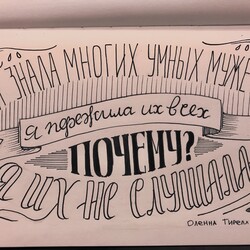 Я ЗНАЛА МНОГИХ УМНЫХ МУЖЧ
я пережила их всех
ПОЧЕМУ?
Я ИХ НЕ СЛУШАЛА
Оленна Тирелл